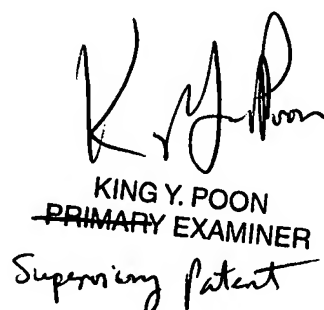 K. Y. Poon
KING Y. POON
PRIMARY EXAMINER
Supervisory Patent